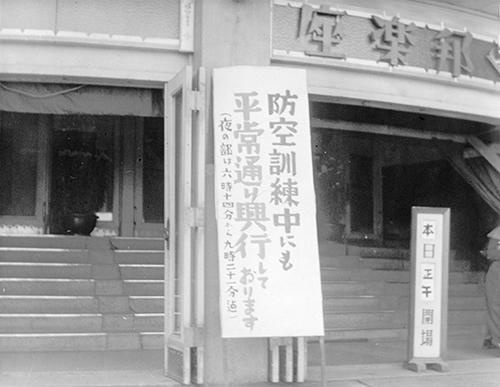 座楽邦
防空訓練中にも
平常通り興行して
おります
(夜の部は六時十四分から九時二十一分迄)
本日正午開場